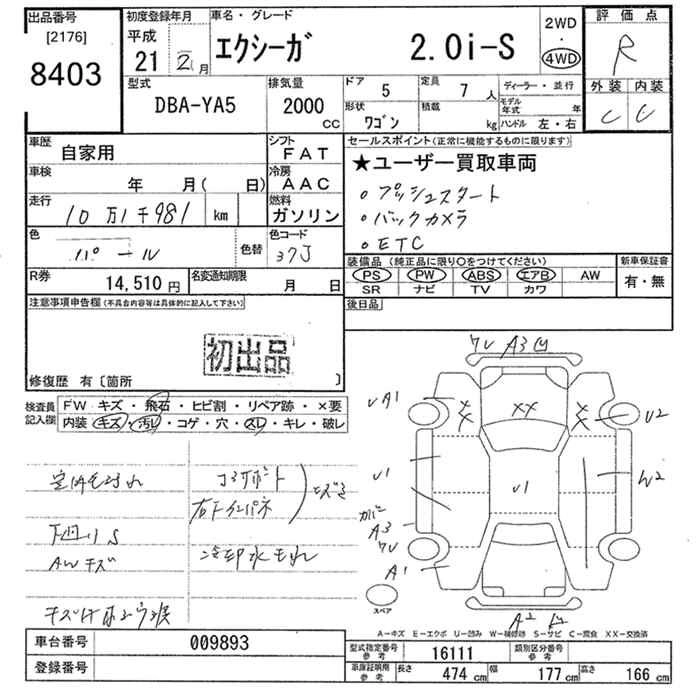 出品番号
[2176]
8403
初度登録年月
平成
21 2月
車名・グレード
エクシーガ 2.0i-S
2WD
・
4WD
評価点
R
外装 内装
C C
型式
DBA-YA5
排気量
2000
CC
ドア 5
形状 ワゴン
定員 7 人
積載 kg
ディーラー・並行
モデル年式 年
ハンドル 左・右
車歴 自家用
シフト FAT
車検 年 月( 日)
冷房 AAC
走行 10万1千981 km
燃料 ガソリン
色 パール
色替
色コード 37J
R券 14,510円
名変通知期限 月 日
セールスポイント(正常に機能するものに限ります)
★ユーザー買取車両
○プッシュスタート
○バックカメラ
○ETC
装備品(純正品に限り○をつけてください)
PS PW ABS エアB AW
SR ナビ TV カワ
新車保証書
有・無
後日品
注意事項申告欄(不具合内容等は具体的に記入して下さい)
初出品
修復歴 有〔箇所 〕
検査員記入欄
FW キズ・飛石・ヒビ割・リペア跡・×要
内装 キズ・汚レ・コゲ・穴・スレ・キレ・破レ
室内毛汚れ
コアサポート
下廻りS
AWキズ
冷却水もれ
ワレ A3
U A1
XX
U2
U1
U1
W2
カバー
A3
ワレ
A1
スペア
A2
A－キズ E－エクボ U－凹み W－補修跡 S－サビ C－腐食 XX－交換済
車台番号 009893
登録番号
型式指定番号参考 16111
類別区分番号参考
車庫証明用参考 長さ 474cm 幅 177cm 高さ 166cm